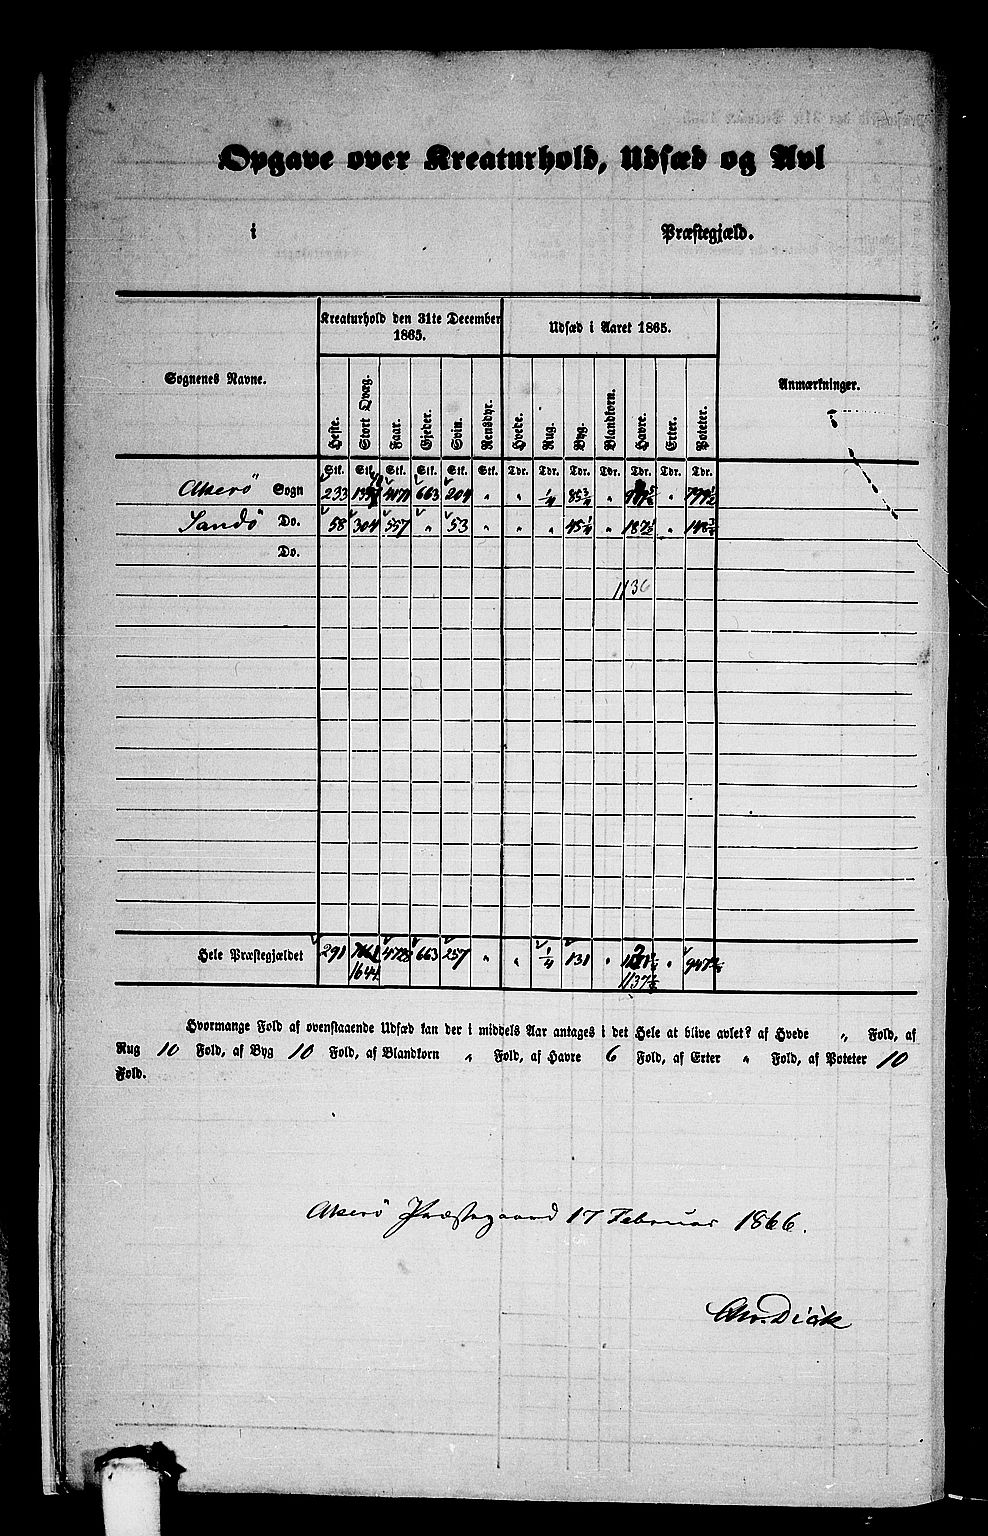 Opgave over Kreaturhold, Udsæd og Avl
i Præstegjæld.
Sognenes Navne. Kreaturhold den 31te December 1865. Udsæd i Aaret 1865. Anmærkninger.
Heste. Stort Qvæg. Faar. Gjeder. Svin. Rensdyr. Hvede. Rug. Byg. Blandkorn. Havre. Erter. Poteter.
Stk. Stk. Stk. Stk. Stk. Stk. Tdr. Tdr. Tdr. Tdr. Tdr. Tdr. Tdr.
Akerö Sogn 233 663 204 „ „ ¼ 85¾ „ „ 799½
Sandö Do. 58 304 557 „ 53 „ „ 45¼ „ 187½ „ 148¾
Do.
1136
Hele Præstegjældet 291 663 257 „ „ ¼ 131 „ „
1644
Hvormange Fold af ovenstaaende Udsæd kan der i middels Aar antages i det Hele at blive avlet? af Hvede „ Fold, af
Rug 10 Fold, af Byg 10 Fold, af Blandkorn „ Fold, af Havre 6 Fold, af Erter „ Fold, af Poteter 10
Fold.
Akerö Præstegaard 17 Februar 1866.
Chr. Dick